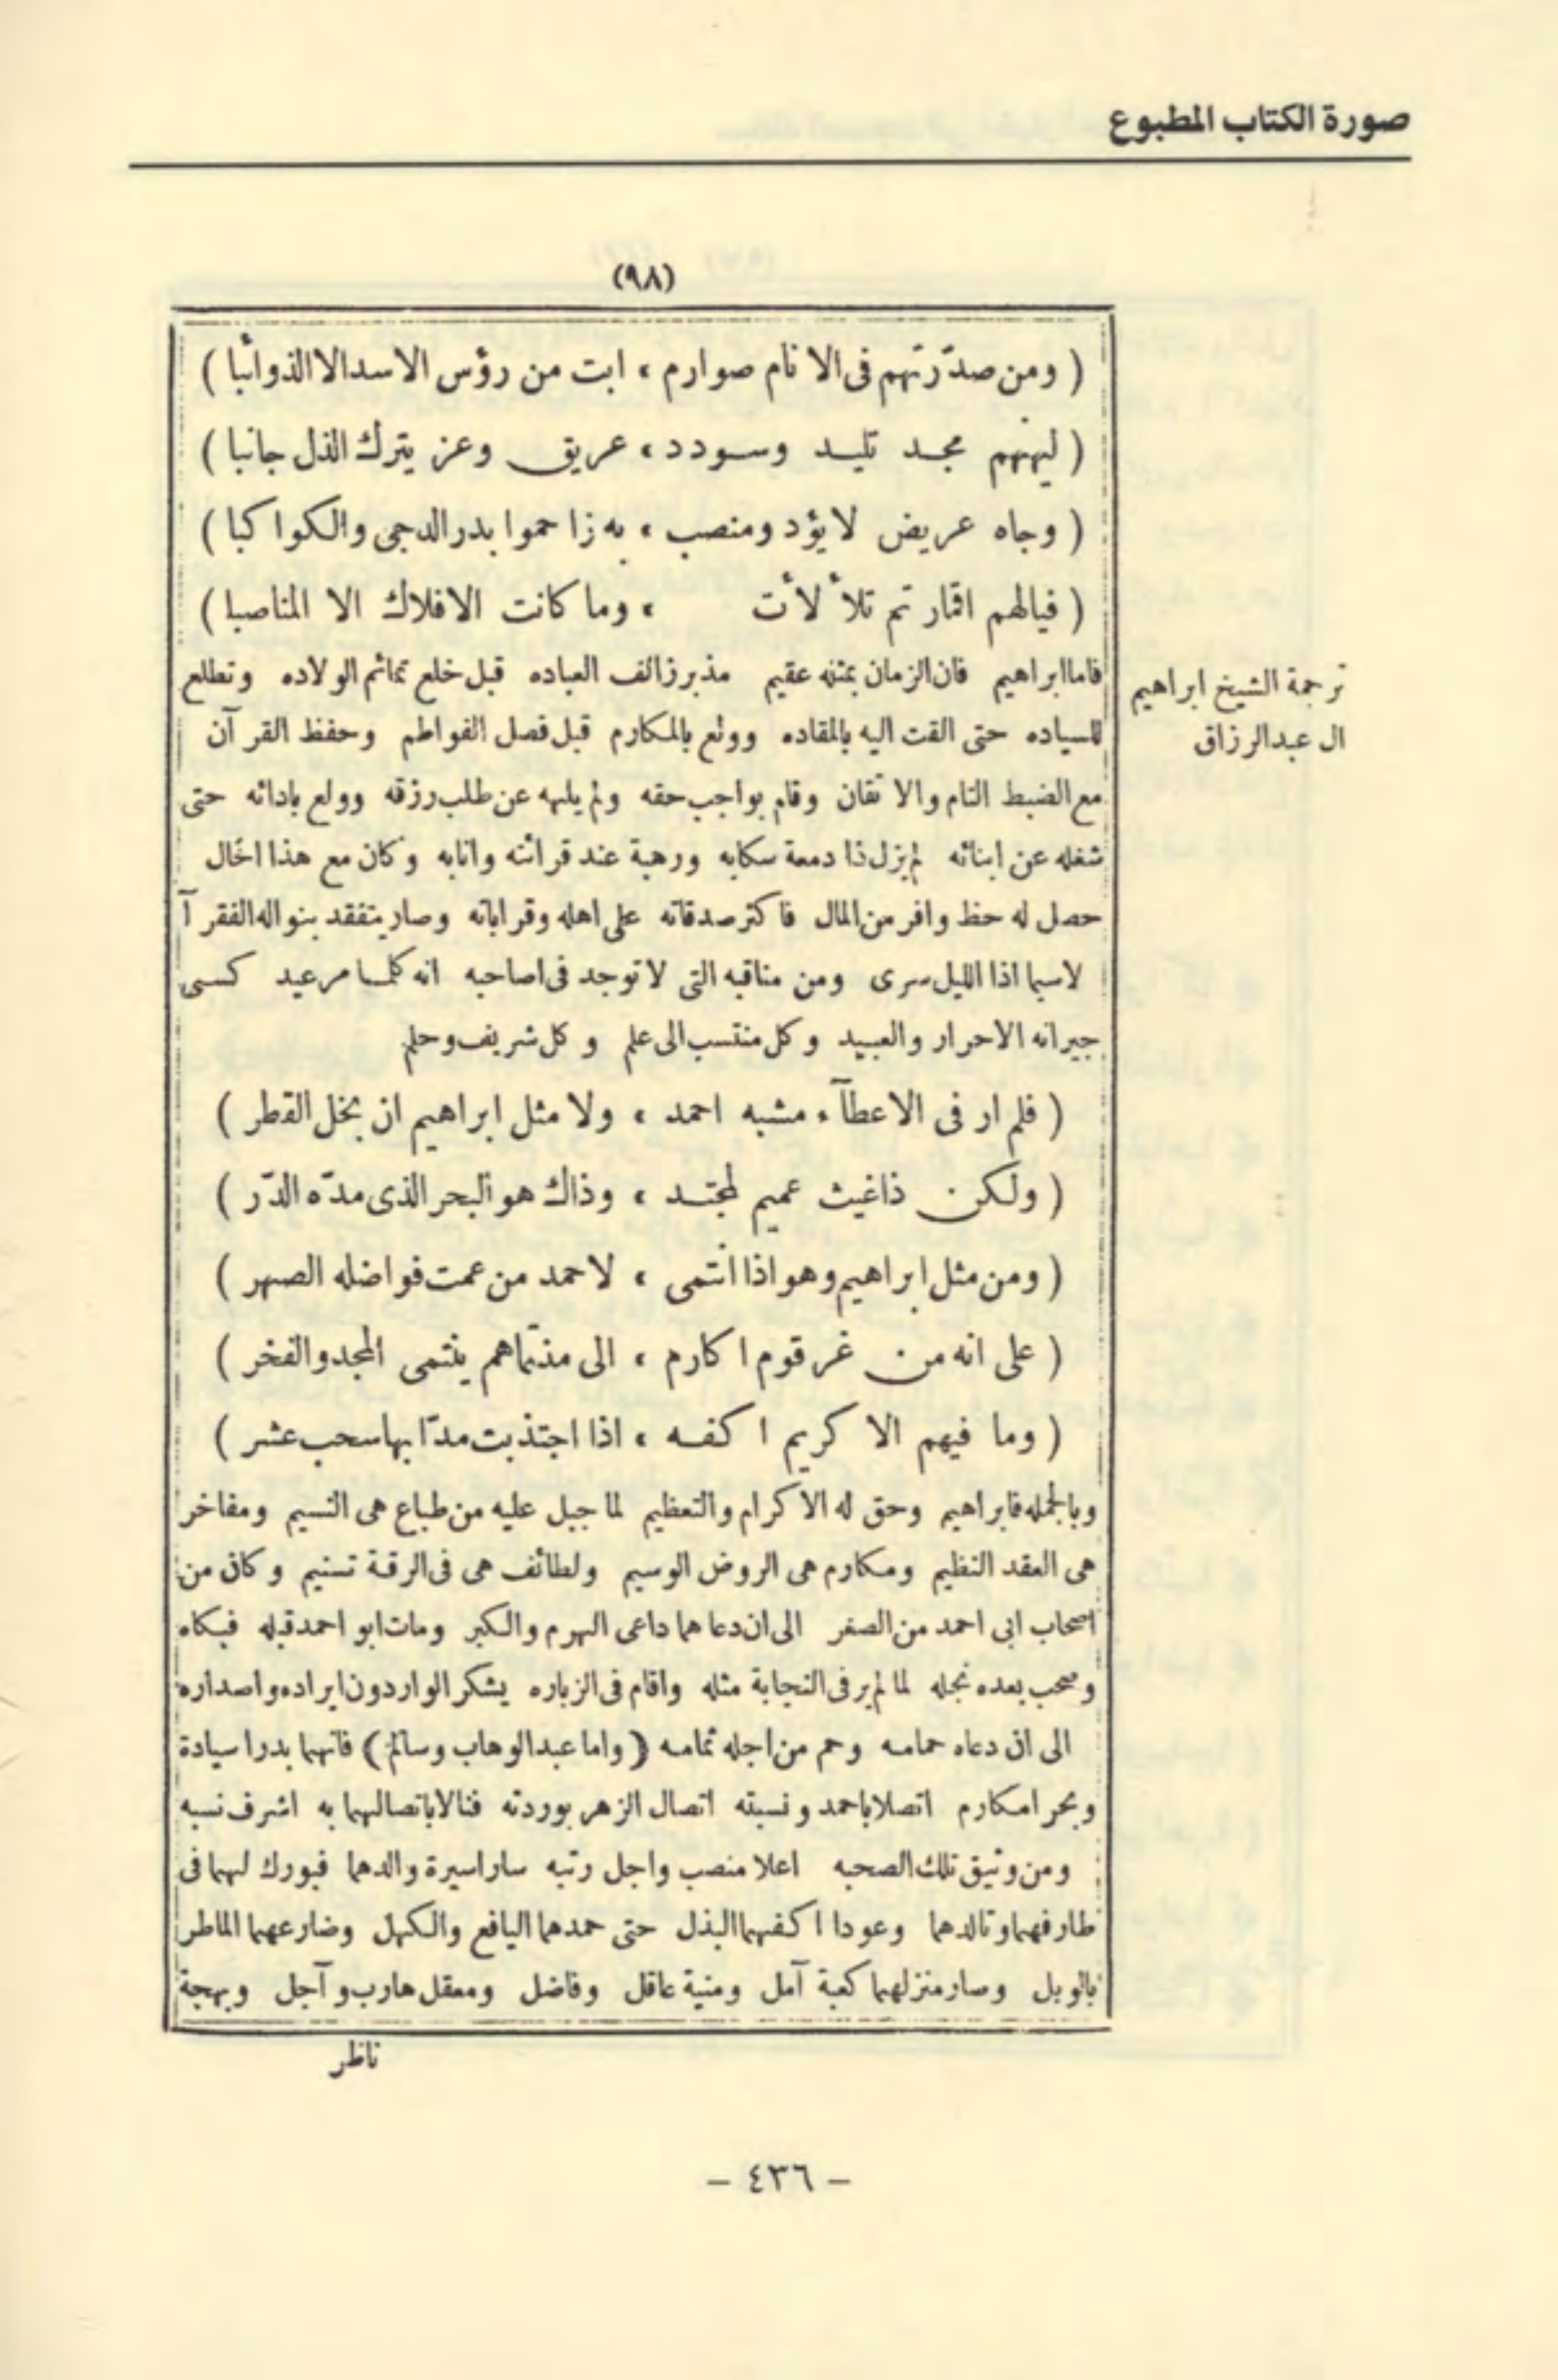 صورة الكتاب المطبوع
(٩٨)
( ومن صدّرتهم فى الانام صوارم ، ابت من رؤس الاسد الا الذوائبا )
( ليهنهم مجد تليد وسودد ، عريق وعز يترك الذل جانبا )
( وجاه عريض لا يؤد ومنصب ، به زاحموا بدر الدجى والكواكبا )
( فيالهم اقمار تم تلألأت ، وما كانت الافلاك الا المناصبا )
فاما ابراهيم فان الزمان بمثله عقيم مذ برز الف العباده قبل خلع تمائم الولاده وتطلع
للسياده حتى القت اليه بالمقاده وولع بالمكارم قبل فصل الفواطم وحفظ القرآن
مع الضبط التام والاتقان وقام بواجب حقه ولم يلهه عن طلب رزقه وولع بادائه حتى
شغله عن ابنائه لم يزل ذا دمعة سكابه ورهبة عند قرائته وانابه وكان مع هذا الحال
حصل له حظ وافر من المال فاكثر صدقاته على اهله وقراباته وصار يتفقد بنواله الفقرآ
لاسيما اذا الليل سرى ومن مناقبه التى لا توجد فى اصاحبه انه كلما مر عيد كسى
جيرانه الاحرار والعبيد وكل منتسب الى علم وكل شريف وحلم
( فلم ار فى الاعطآء مشبه احمد ، ولا مثل ابراهيم ان بخل القطر )
( ولكن ذا غيث عميم لمجتد ، وذاك هو البحر الذى مدّه الدّر )
( ومن مثل ابراهيم وهو اذا انتمى ، لاحمد من عمت فواضله الصهر )
( على انه من غر قوم اكارم ، الى منتماهم ينتمى المجد والفخر )
( وما فيهم الا كريم اكفه ، اذا اجتذبت مدّا بها سحب عشر )
وبالجمله فابراهيم وحق له الاكرام والتعظيم لما جبل عليه من طباع هى النسيم ومفاخر
هى العقد النظيم ومكارم هى الروض الوسيم ولطائف هى فى الرقة تسنيم وكان من
اصحاب ابى احمد من الصغر الى ان دعاهما داعى الهرم والكبر ومات ابو احمد قبله فبكاه
وصحب بعده نجله لما لم ير فى النجابة مثله واقام فى الزباره يشكر الواردون ايراده واصداره
الى ان دعاه حمامه وحم من اجله تمامه ( واما عبد الوهاب وسالم ) فانهما بدرا سيادة
وبحرا مكارم اتصلا باحمد ونسبته اتصال الزهر بوردته فنالا باتصالهما به اشرف نسبه
ومن وثيق تلك الصحبه اعلا منصب واجل رتبه سارا سيرة والدهما فبورك لهما فى
طارفهما وتالدهما وعودا اكفهما البذل حتى حمدهما اليافع والكهل وضارعهما الماطر
بالوبل وصار منزلهما كعبة آمل ومنية عاقل وفاضل ومعقل هارب وآجل وبهجة
ناظر
ترجمة الشيخ ابراهيم
ال عبد الرزاق
– ٤٣٦ –